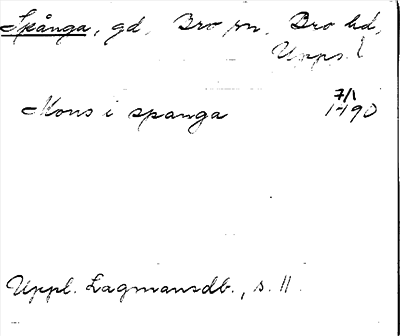 Spånga, gd, Bro sn, Bro hd,
Upps. l
Mons i spanga 7/1 1490
Uppl. Lagmansdb., s. 11.